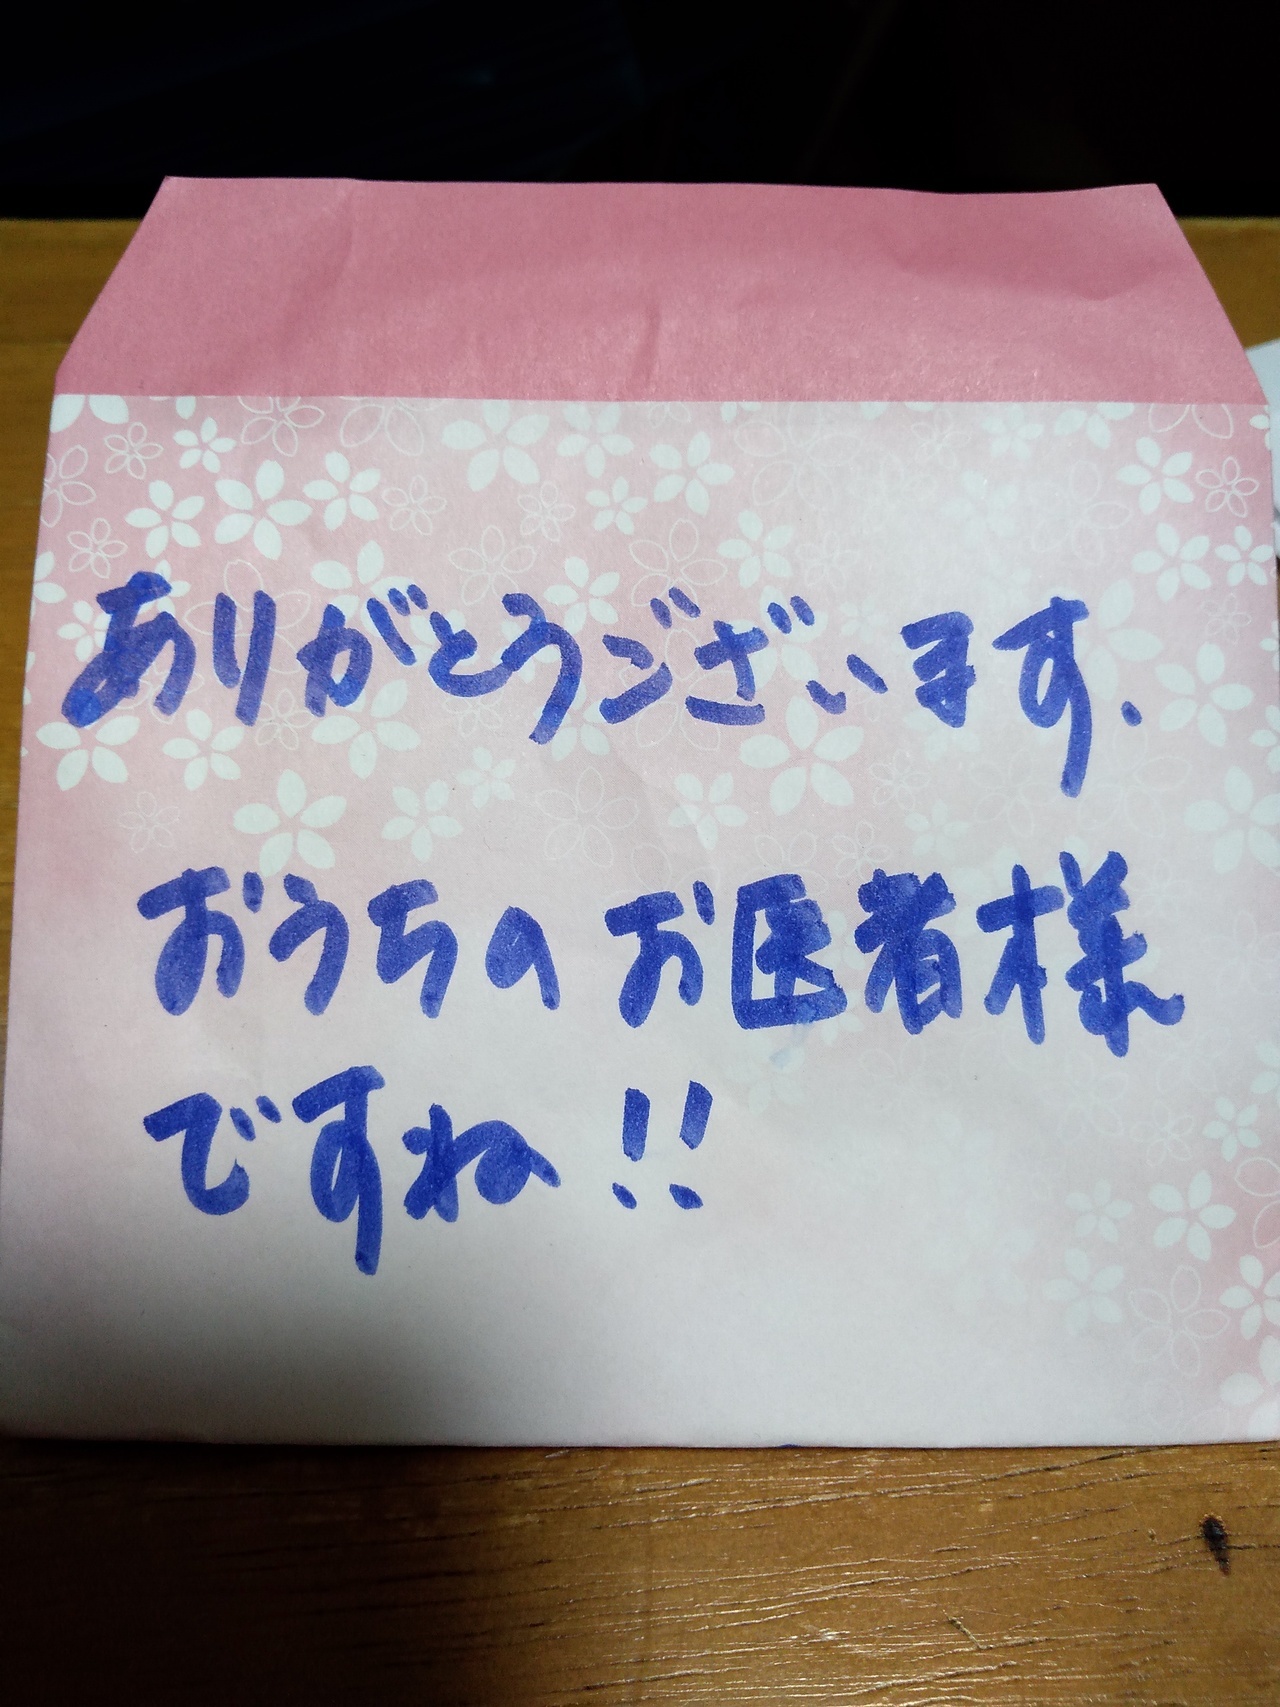 ありがとうございます.
おうちのお医者様
ですね!!